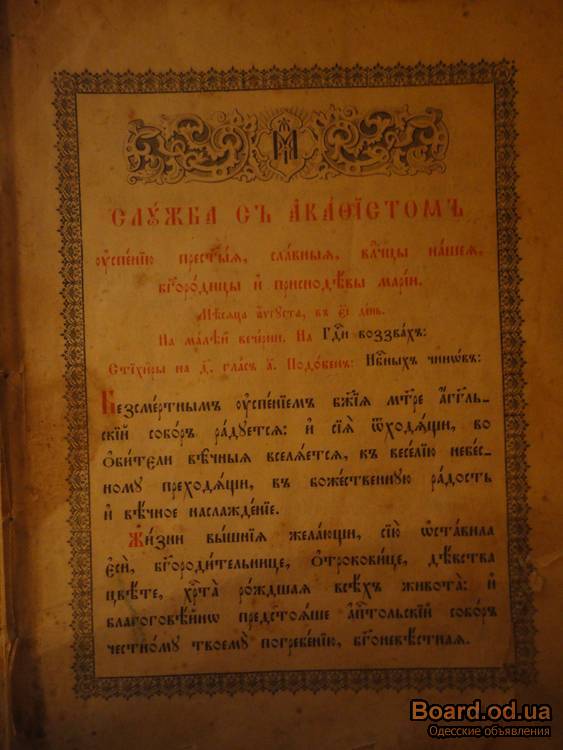 СЛꙊ́ЖБА СЪ А҆КА́ѲІСТОМЪ
ᲂу҆спе́нїю прест҃ы́ѧ, сла́вныѧ, влⷣчцы на́шеѧ,
бг҃оро́дицы и҆ приснодѣ́вы марі́и.
Мѣ́сѧца а҆́ѵгꙋста, въ є҃і де́нь.
На ма́лѣй вече́рни. На Гдⷭ҇и воззва́хъ:
Стїхи̑ры на д҃, гла́съ а҃. Подо́бенъ: Нбⷭ҇ныхъ чинѡ́въ:
Безсме́ртнымъ ᲂу҆спе́нїемъ бж҃їѧ мт҃ре а҆́гг҃ль-
скїй собо́ръ ра́дꙋетсѧ: и҆ сїѧ̀ ѿходѧ́щи, во
ѻ҆би́тєли вѣ̑чныѧ вселѧ́етсѧ, къ весе́лїю небе́с-
номꙋ преходѧ́щи, въ боже́ственнꙋю ра́дость
и҆ вѣ́чное наслажде́нїе.
Жи́зни вы́шнїѧ жела́ющи, сїю̀ ѡ҆ста́вила
є҆сѝ, бг҃ороди́тельнице, ѻ҆трокови́це, дѣ́вства
цвѣ́те, хрⷭ҇та̀ ро́ждшаѧ всѣ́хъ живота̀: и҆
благоговѣ́йнѡ предстоѧ́ше а҆пⷭ҇тольскїй собо́ръ
честно́мꙋ твоемꙋ̀ погребе́нїю, бг҃оневѣ́стнаѧ.
Board.od.ua
Одесские объявления